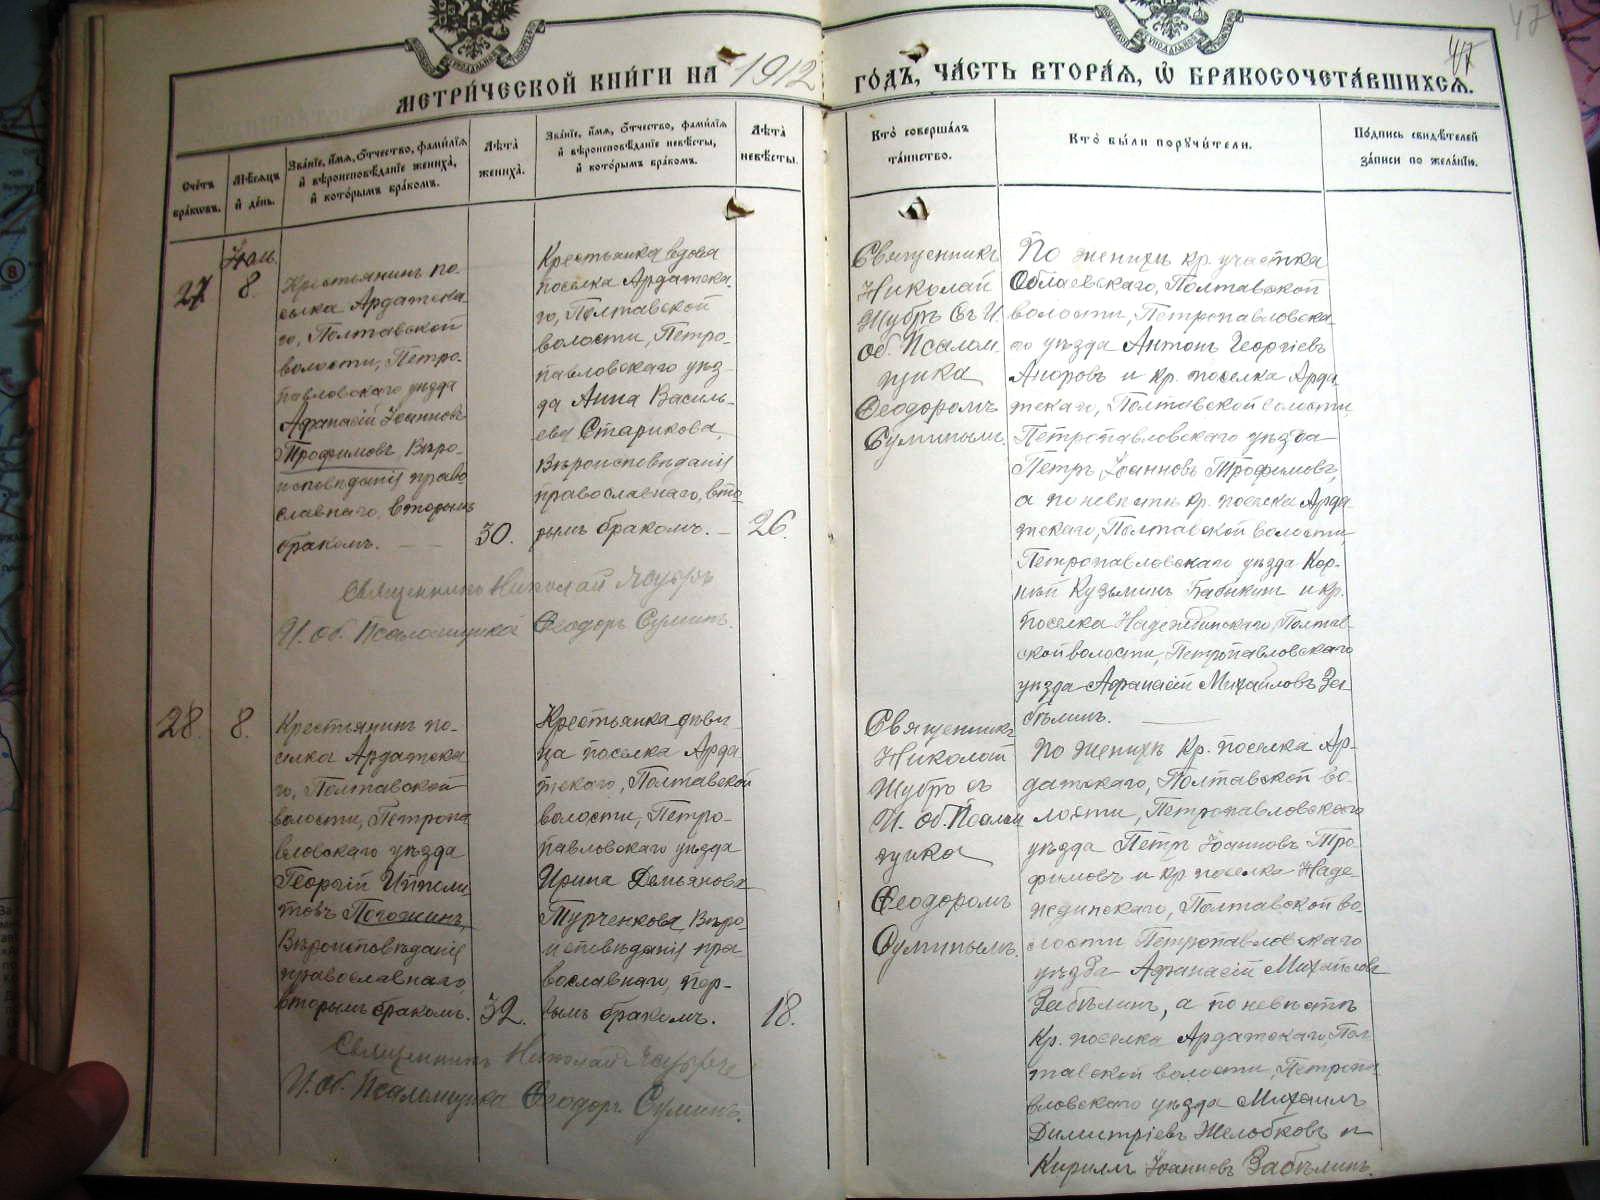 47
47
МЕТРИ́ЧЕСКОЙ КНИ́ГИ НА 1912 ГО́ДЪ, ЧА́СТЬ ВТОРА́Я, Ѡ҆ БРАКОСОЧЕТА́ВШИХСЯ.
Сче́тъ
бра́ковъ.
Мѣ́сяцъ
и҆ де́нь.
Зва́нїе, и҆́мя, Ѻ҆́тчество, фами́лїя
и҆ вѣроисповѣ́данїе жениха̀,
и҆ кото́рымъ бра́комъ.
Лѣ́та̀
жениха̀.
Зва́нїе, и҆́мя, Ѻ҆́тчество, фами́лїя
и҆ вѣроисповѣ́данїе невѣ́сты,
и҆ кото́рымъ бра́комъ.
Лѣ́та̀
невѣ́сты.
Кто̀ соверша́лъ
та́инство.
Кто̀ бы́ли порꙋчи́тели.
По́дпись свидѣ́телей
за́писи по жела́нїю.
27
Іюль
8.
Крестьянинъ по-
селка Ардатска-
го, Полтавской
волости, Петро-
павловскаго уѣзда
Афанасій Іоанновъ
Трофимовъ Вѣро-
исповѣданія право
славнаго, вторымъ
бракомъ. —
30.
Крестьянка вдова
поселка Ардатска-
го, Полтавской
волости, Петро-
павловскаго уѣз-
да Анна Василь-
ева Старикова,
Вѣроисповѣданія
православнаго, вто-
рымъ бракомъ. —
26.
Священникъ
Николай
съ И.
об. Псалом-
щика
Феодоромъ
Суминымъ.
По женихѣ кр. участка
Полтавской
волости, Петропавловска-
го уѣзда Антонъ Георгіевъ
и кр. поселка Арда
тскаго, Полтавской волости,
Петропавловскаго уѣзда
Петръ Іоанновъ Трофимовъ,
а по невѣстѣ кр. поселка Арда-
тскаго, Полтавской волости
Петропавловскаго уѣзда Кор-
ній Кузьминъ и кр.
поселка Надеждинскаго, Полтав-
ской волости, Петропавловскаго
уѣзда Афанасій Михайловъ За-
бѣлинъ. —
Священникъ Николай
И. об. Псаломщика Феодоръ Суминъ.
28.
8.
Крестьянинъ по-
селка Ардатска-
го, Полтавской
волости, Петропа
вловскаго уѣзда
Георгій Ипполи
товъ Погожинъ,
Вѣроисповѣданія
православнаго,
вторымъ бракомъ.
32.
Крестьянка дѣви
ца поселка Арда
тскаго, Полтавской
волости, Петро-
павловскаго уѣзда
Ирина Демьянова
Турченкова Вѣро-
исповѣданія пра
вославнаго, пер-
вымъ бракомъ.
18.
Священникъ
Николай
съ
И. об. Псалом
щика
Феодоромъ
Суминымъ.
По женихѣ Кр. поселка Ар-
датскаго, Полтавской во-
лости, Петропавловскаго
уѣзда Петръ Іоанновъ Тро
фимовъ и кр. поселка Наде
ждинскаго, Полтавской во-
лости Петропавловскаго
уѣзда Афанасій Михайловъ
Забѣлинъ, а по невѣстѣ
Кр. поселка Ардатскаго, Пол-
тавской волости, Петропа
вловскаго уѣзда Михаилъ
Димитріевъ Желобковъ и
Кириллъ Іоанновъ Забѣлинъ.
Священникъ Николай
И. об. Псаломщика Феодоръ Суминъ.